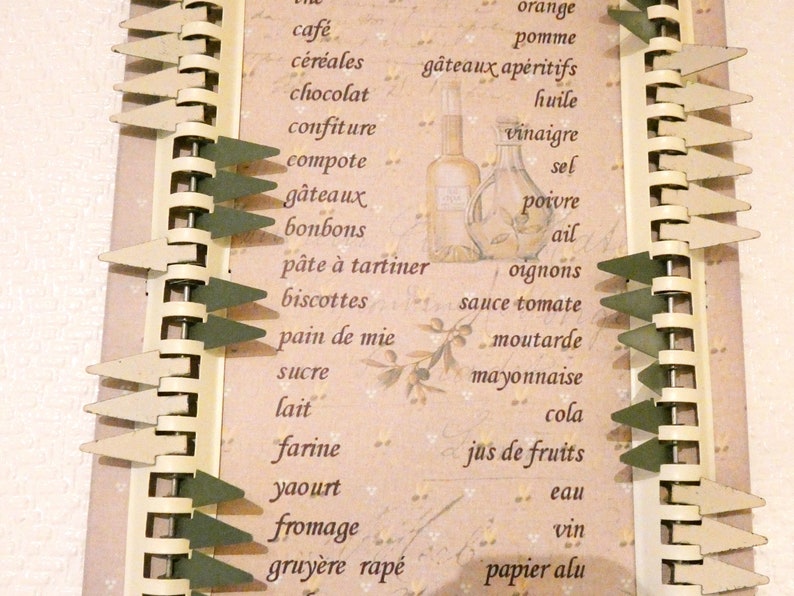 thé
café
céréales
chocolat
confiture
compote
gâteaux
bonbons
pâte à tartiner
biscottes
pain de mie
sucre
lait
farine
yaourt
fromage
gruyère rapé
orange
pomme
gâteaux apéritifs
huile
vinaigre
sel
poivre
ail
oignons
sauce tomate
moutarde
mayonnaise
cola
jus de fruits
eau
vin
papier alu